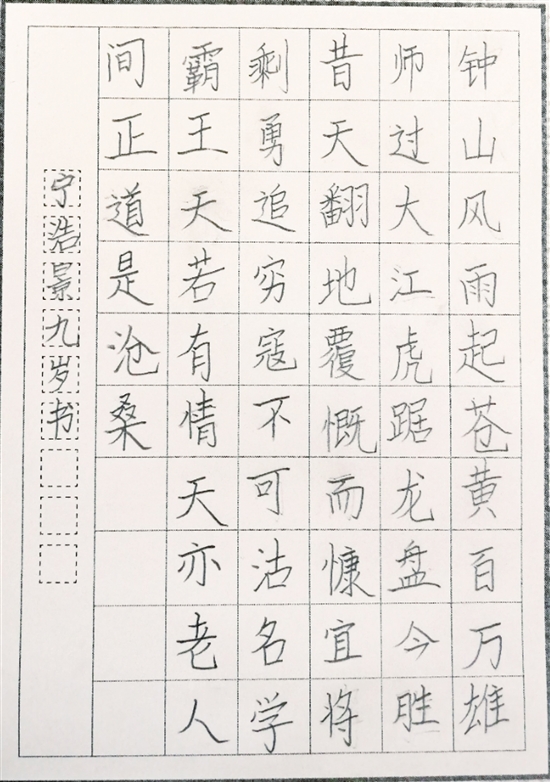 钟山风雨起苍黄百万雄
师过大江虎踞龙盘今胜
昔天翻地覆慨而慷宜将
剩勇追穷寇不可沽名学
霸王天若有情天亦老人
间正道是沧桑
宁浩景九岁书